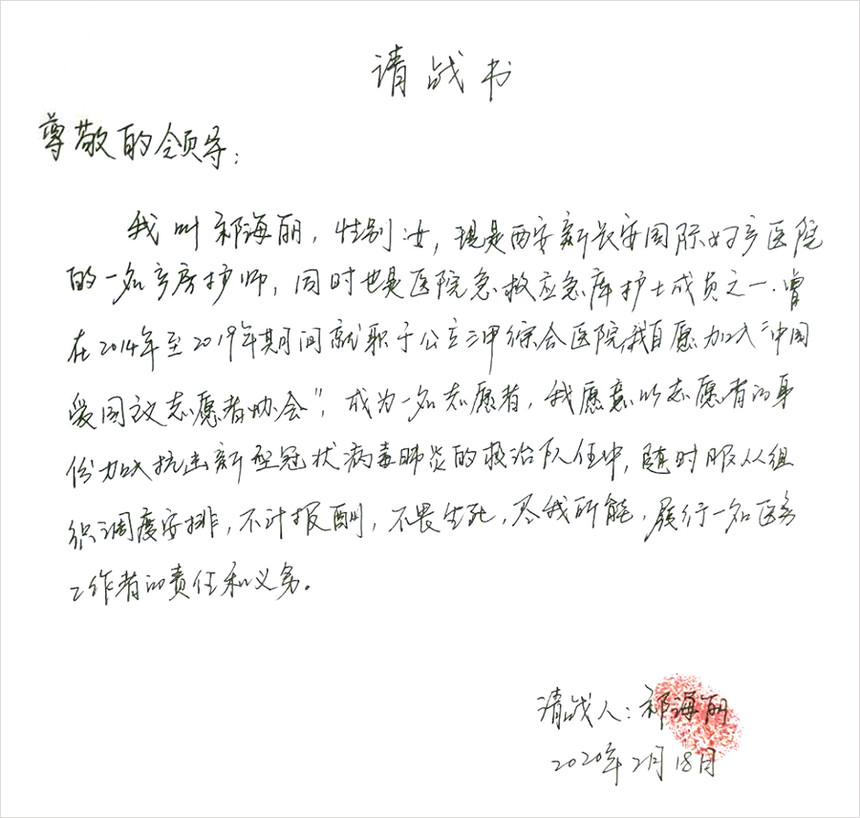 请战书
尊敬的领导:
我叫祁海丽,性别女,现是西安新长安国际妇产医院
的一名产房护师,同时也是医院急救应急库护士成员之一.曾
在2014年至2019年期间就职于公立三甲综合医院,我自愿加入"中国
爱国议志愿者协会",成为一名志愿者,我愿意以志愿者的身
份加入抗击新型冠状病毒肺炎的救治队伍中,随时服从组
织调度安排,不计报酬,不畏生死,尽我所能,履行一名医务
工作者的责任和义务。
请战人:祁海丽
2020年2月18日